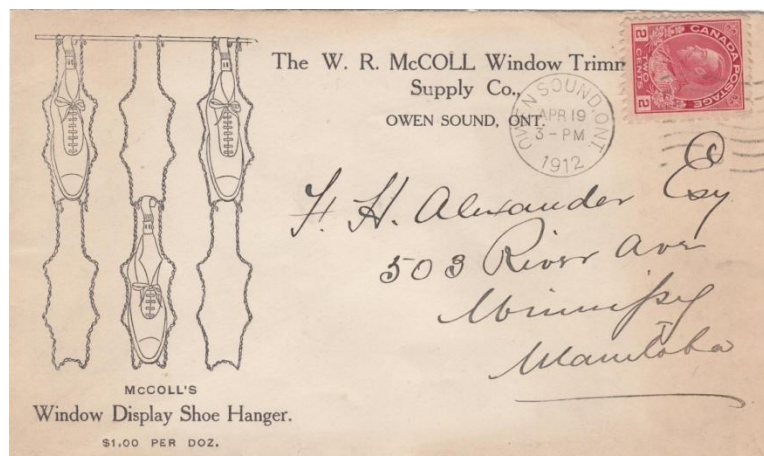 The W. R. McCOLL Window Trimr
Supply Co.,
OWEN SOUND, ONT.
OWEN SOUND, ONT.
APR 19
3 - PM
1912
CANADA POSTAGE
2 CENTS
TWO CENTS 2
F. H. Alexander Esq
503 River Ave
Winnipeg
Manitoba
McCOLL'S
Window Display Shoe Hanger.
$1.00 PER DOZ.